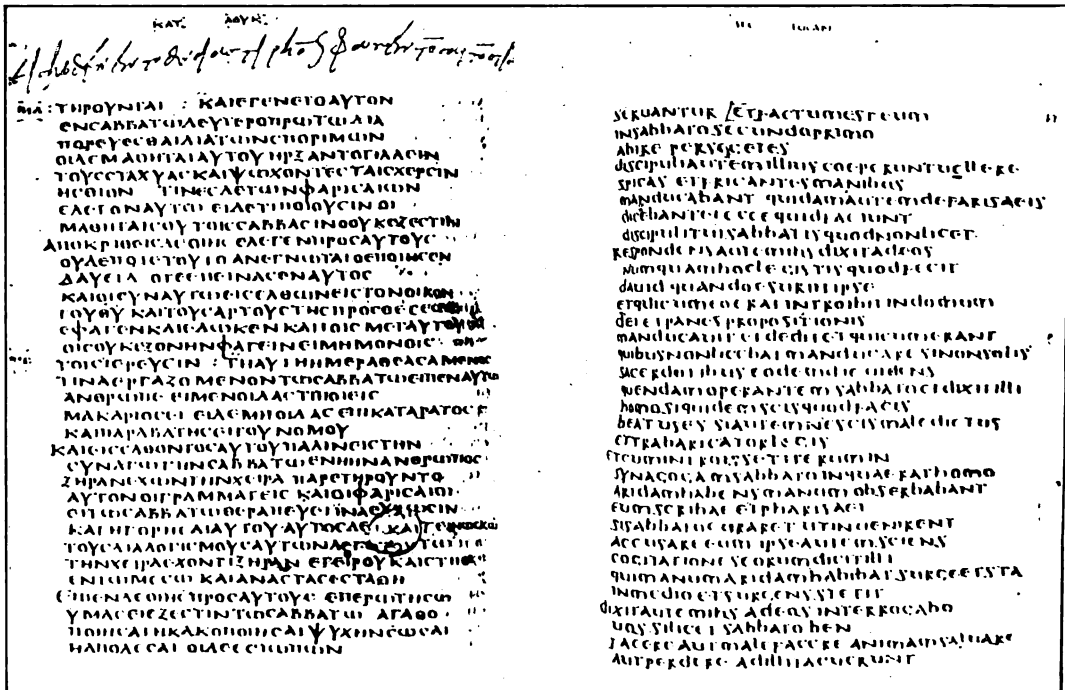 ΚΑΤ ΛΟΥΚ
ΤΗΡΟΥΝΤΑΙ : ΚΑΙΕΓΕΝΕΤΟΑΥΤΟΝ
ΕΝϹΑΒΒΑΤΩΔΕΥΤΕΡΟΠΡΩΤΩΔΙΑ
ΠΟΡΕΥΕϹΘΑΙΔΙΑΤΩΝϹΠΟΡΙΜΩΝ
ΟΙΔΕΜΑΘΗΤΑΙΑΥΤΟΥΗΡΞΑΝΤΟΤΙΛΛΕΙΝ
ΤΟΥϹϹΤΑΧΥΑϹΚΑΙΨΩΧΟΝΤΕϹΤΑΙϹΧΕΡϹΙΝ
ΗϹΘΙΟΝ ΤΙΝΕϹΔΕΤΩΝΦΑΡΙϹΑΙΩΝ
ΕΛΕΓΟΝΑΥΤΩ ΕΙΔΕΤΙΠΟΙΟΥϹΙΝΟΙ
ΜΑΘΗΤΑΙϹΟΥΤΟΙϹϹΑΒΒΑϹΙΝΟΟΥΚΕΞΕϹΤΙΝ
ΑΠΟΚΡΙΘΕΙϹΔΕΟΙΗϹ ΕΛΕΓΕΝΠΡΟϹΑΥΤΟΥϹ
ΟΥΔΕΠΟΤΕΤΟΥΤΟ ΑΝΕΓΝΩΤΑΙΟΕΠΟΙΗϹΕΝ
ΔΑΥΕΙΔ ΟΤΕΕΠΕΙΝΑϹΕΝΑΥΤΟϹ
ΚΑΙΟΙϹΥΝΑΥΤΩΕΙϹΕΛΘΩΝΕΙϹΤΟΝΟΙΚΟΝ
ΤΟΥΘΥ ΚΑΙΤΟΥϹΑΡΤΟΥϹΤΗϹΠΡΟϹΘΕϹΕΩϹ
ΕΦΑΓΕΝΚΑΙΕΔΩΚΕΝΚΑΙΤΟΙϹΜΕΤΑΥΤΟΥ
ΟΙϹΟΥΚΕΞΟΝΗΝΦΑΓΕΙΝΕΙΜΗΜΟΝΟΙϹ
ΤΟΙϹΙΕΡΕΥϹΙΝ : ΤΗΑΥΤΗΗΜΕΡΑΘΕΑϹΑΜΕΝΟϹ
ΤΙΝΑΕΡΓΑΖΟΜΕΝΟΝΤΩϹΑΒΒΑΤΩΕΙΠΕΝΑΥΤΩ
ΑΝΘΡΩΠΕ ΕΙΜΕΝΟΙΔΑϹΤΙΠΟΙΕΙϹ
ΜΑΚΑΡΙΟϹΕΙ ΕΙΔΕΜΗΟΙΔΑϹΕΠΙΚΑΤΑΡΑΤΟϹ
ΚΑΙΠΑΡΑΒΑΤΗϹΕΙΤΟΥΝΟΜΟΥ
ΚΑΙΕΙϹΕΛΘΟΝΤΟϹΑΥΤΟΥΠΑΛΙΝΕΙϹΤΗΝ
ϹΥΝΑΓΩΓΗΝϹΑΒΒΑΤΩΕΝΗΗΝΑΝΘΡΩΠΟϹ
ΞΗΡΑΝΕΧΩΝΤΗΝΧΕΙΡΑ ΠΑΡΕΤΗΡΟΥΝΤΟ
ΑΥΤΟΝΟΙΓΡΑΜΜΑΤΕΙϹ ΚΑΙΟΙΦΑΡΙϹΑΙΟΙ
ΕΙΤΩϹΑΒΒΑΤΩΘΕΡΑΠΕΥΕΙΙΝΑΕΥΡΩϹΙΝ
ΚΑΤΗΓΟΡΗϹΑΙΑΥΤΟΥ ΑΥΤΟϹΔΕ ΓΕΙΝΩϹΚΩΝ
ΤΟΥϹΔΙΑΛΟΓΙϹΜΟΥϹΑΥΤΩΝΛΕΓΕΙ ΤΩ
ΤΗΝΧΕΙΡΑΕΧΟΝΤΙΞΗΡΑΝ ΕΓΕΙΡΟΥΚΑΙϹΤΗΘΙ
ΕΝΤΩΜΕϹΩ ΚΑΙΑΝΑϹΤΑϹΕϹΤΑΘΗ
ΕΙΠΕΝΔΕΟΙΗϹΠΡΟϹΑΥΤΟΥϹ ΕΠΕΡΩΤΗϹΩ
ΥΜΑϹΕΙΕΞΕϹΤΙΝΤΩϹΑΒΒΑΤΩ ΑΓΑΘΟ
ΠΟΙΗϹΑΙΗΚΑΚΟΠΟΙΗϹΑΙΨΥΧΗΝϹΩϹΑΙ
ΗΑΠΟΛΕϹΑΙ ΟΙΔΕΕϹΙΩΠΩΝ
sec lucan
seruantur etfactumesteum
insabbatosecundoprimo
abire persegetes
discipuliautemillius coeperuntuellere
spicas etfricantesmanibus
manducabant quidamautemdefarisaeis
dicebanteiecce quidfaciunt
discipulituisabbatisquodnonlicet
respondensautemihs dixitadeos
numquamhoclegistisquodfecit
dauid quandoesuriitipse
etquicumeoerantintroibitindomum
dei etpanespropositionis
manducauitetdeditetquicumerant
quibusnonlicebatmanducaresinonsolis
sacerdotibuseodemdieuidens
quendamoperantemsabbatoetdixitilli
homo siquidemscisquodfacis
beatuses siautemnescismaledictus
ettrabaricatorlegis
etcumintroissetiterumin
synagogamsabbatoinquaerathomo
aridamhabensmanum obserbabant
eumscribae etpharisaei
sisabbatocuraret utinuenirent
accusareeum ipseautemsciens
cogitationeseorumdicitilli
quimanumaridamhabebatsurgeetsta
inmedioetsurgensstetit
dixitautemihs adeos interrogabo
uos silicet sabbatoben
facere autmalefacere animamsaluare
autperdere adillitacuerunt